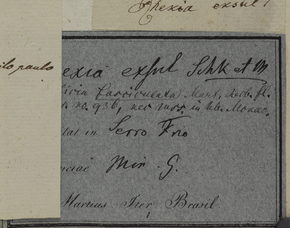 Rhexia exsul!
ilo paulo
exia exsul Schk et M
fasciculata Mart. herb. fl.
n. 936, nec
tat in Serro Frio
nciae Min. G.
Martius Iter Brasil.